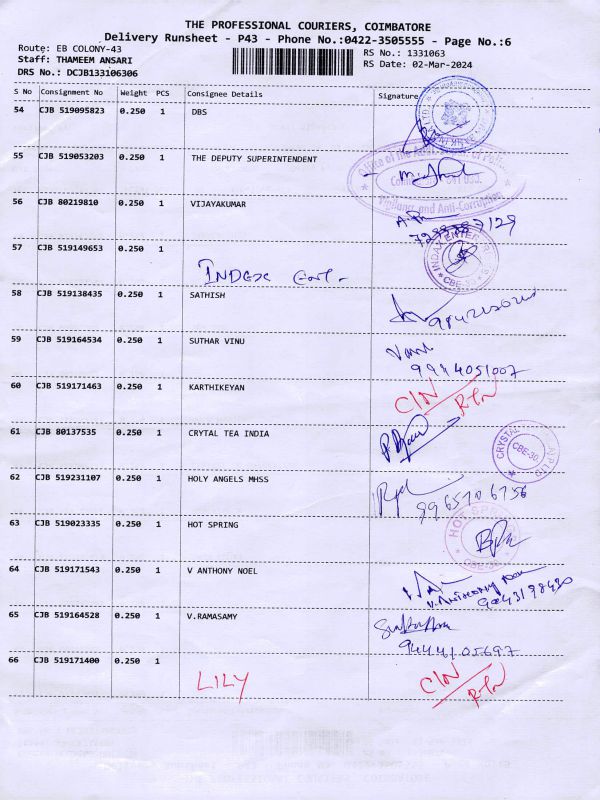 THE PROFESSIONAL COURIERS, COIMBATORE
Delivery Runsheet - P43 - Phone No.:0422-3505555 - Page No.:6
Route: EB COLONY-43
RS No.: 1331063
Staff: THAMEEM ANSARI
RS Date: 02-Mar-2024
DRS No.: DCJB133106306
S No Consignment No Weight PCS Consignee Details Signature
54 CJB 519095823 0.250 1 DBS
55 CJB 519053203 0.250 1 THE DEPUTY SUPERINTENDENT
Vigilance and Anti-Corruption
56 CJB 80219810 0.250 1 VIJAYAKUMAR
57 CJB 519149653 0.250 1
INDEX
CBE-30
58 CJB 519138435 0.250 1 SATHISH
59 CJB 519164534 0.250 1 SUTHAR VINU
9944051007
60 CJB 519171463 0.250 1 KARTHIKEYAN
C/N
RTN
61 CJB 80137535 0.250 1 CRYTAL TEA INDIA
CRYSTAL
CBE-30
62 CJB 519231107 0.250 1 HOLY ANGELS MHSS
9965706756
63 CJB 519023335 0.250 1 HOT SPRING
HOT SPRING
64 CJB 519171543 0.250 1 V ANTHONY NOEL
65 CJB 519164528 0.250 1 V.RAMASAMY
9444105697
66 CJB 519171400 0.250 1
LILY
C/N
RTN